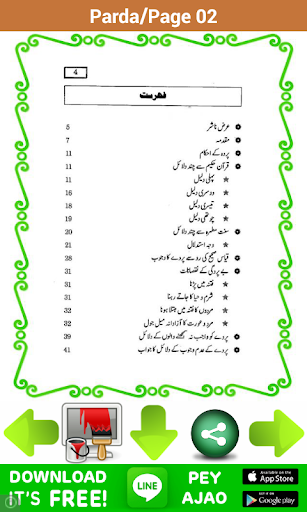 Parda/Page 02
4
فہرست
عرض ناشر 5
مقدمہ 7
پردہ کے احکام 11
قرآن حکیم سے چند دلائل 11
پہلی دلیل 11
دوسری دلیل 16
تیسری دلیل 18
چوتھی دلیل 18
سنت مطہرہ سے چند دلائل 20
وجہ استدلال 21
قیاس صحیح کی رو سے پردے کا وجوب 28
بے پردگی کے نقصانات 31
فتنہ میں پڑنا 31
شرم و حیا کا جاتے رہنا 31
مردوں کا فتنہ میں مبتلا ہونا 31
مرد و عورت کا آزادانہ میل جول 32
پردے کو واجب نہ سمجھنے والوں کے دلائل 39
پردے کے عدم وجوب کے دلائل کا جواب 41
DOWNLOAD
IT'S FREE!
LINE
PEY
AJAO
Available on the
App Store
GET IT ON
Google play